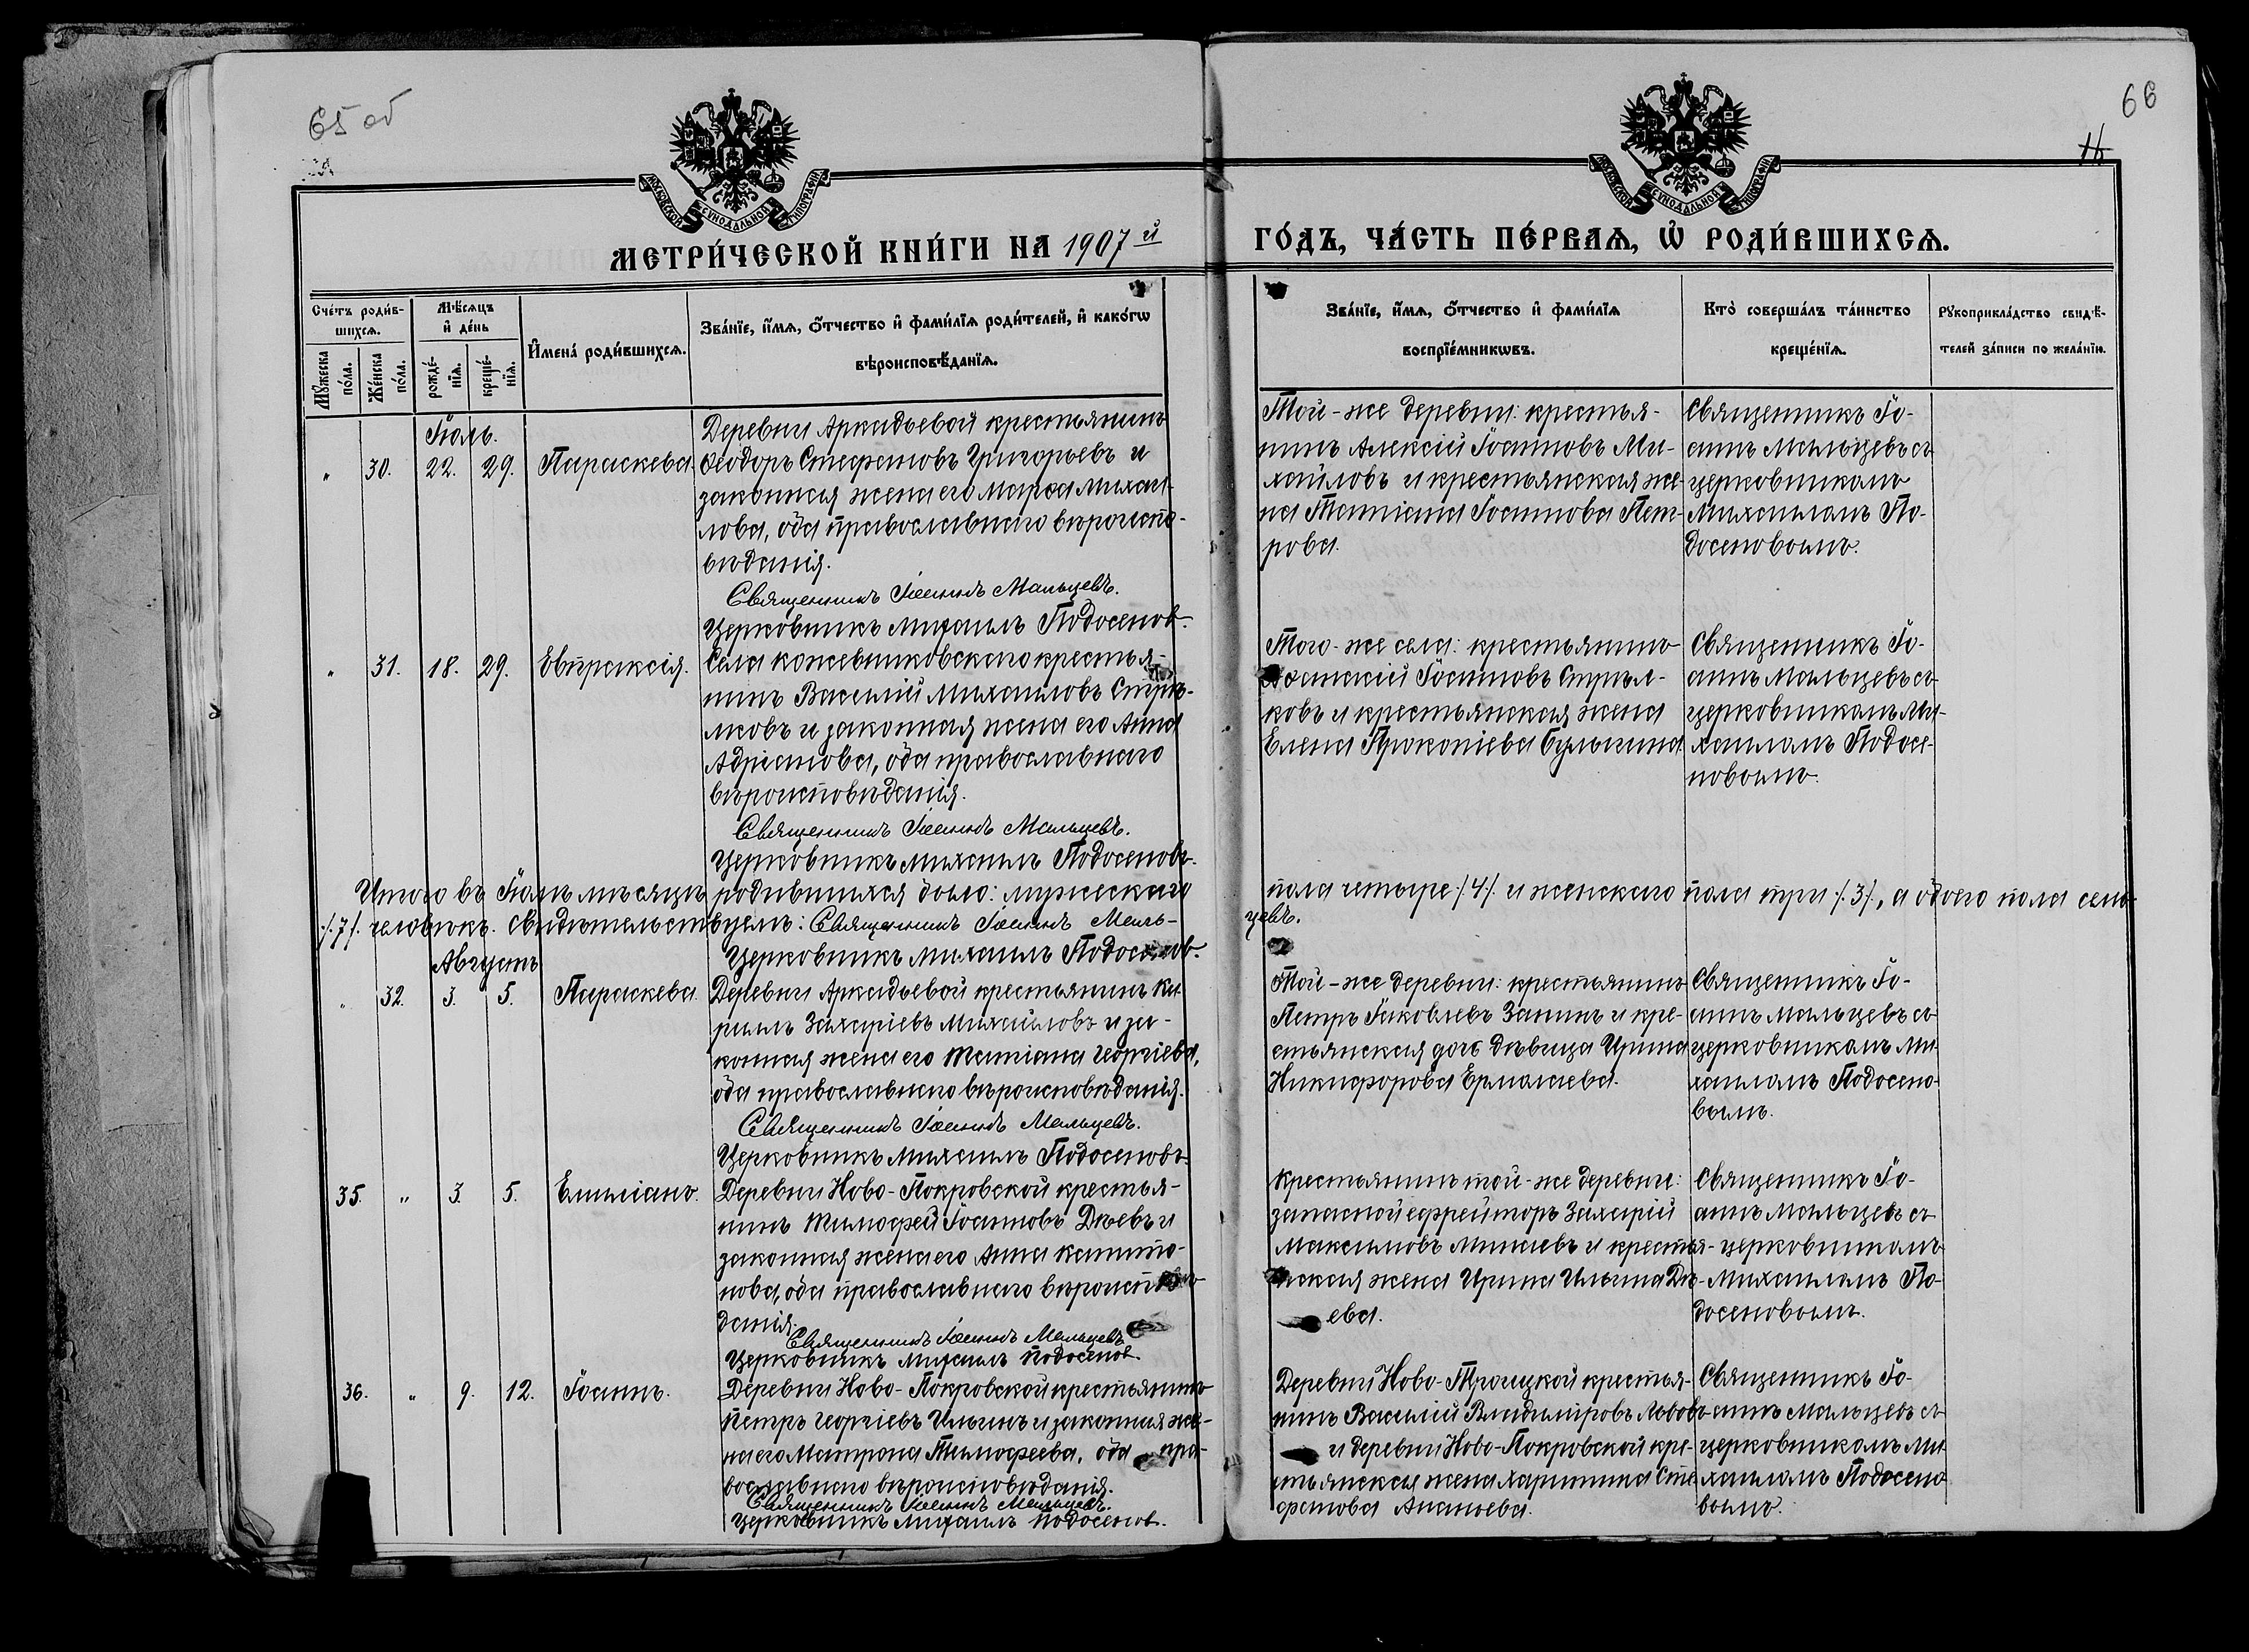 65 об
66
16
МОСКОВСКОЙ СѴНОДАЛЬНОЙ ТИПОГРАФІИ
МОСКОВСКОЙ СѴНОДАЛЬНОЙ ТИПОГРАФІИ
МЕТРИ́ЧЕСКОЙ КНИ́ГИ НА 1907 й
ГО́ДЪ, ЧА́СТЬ ПЕ́РВАѦ, Ѡ҆ РОДИ́ВШИХСѦ.
Сче́тъ роди́в-
шихсѧ.
Мꙋ́жеска
по́ла.
Же́нска
по́ла.
Мѣ́сѧцъ
и҆ де́нь
рожде́-
нїѧ.
креще́-
нїѧ.
И҆мена̀ роди́вшихсѧ.
Зва́нїе, и҆́мѧ, ѻ҆́тчество и҆ фами́лїѧ роди́телей, и҆ како́гѡ
вѣроисповѣ́данїѧ.
Зва́нїе, и҆́мѧ, ѻ҆́тчество и҆ фами́лїѧ
воспрїе́мникѡвъ.
Кто̀ соверша́лъ та́инство
креще́нїѧ.
Рꙋкоприкла́дство свидѣ́-
телей за́писи по жела́нїю.
Іюль.
„ 30. 22. 29. Параскева.
Деревни Аркадьевой крестьянинъ
Ѳеодоръ Стефановъ Григорьевъ и
законная жена его Марѳа Михаи-
лова, оба православнаго вѣроиспо-
вѣданія.
Священникъ Іоаннъ Мальцевъ.
Церковникъ Михаилъ Подосенов.
Той-же деревни: крестья-
нинъ Алексій Іоанновъ Ми-
хайловъ и крестьянская же-
на Татіана Іоаннова Пет-
рова.
Священникъ Іо-
аннъ Мальцевъ съ
церковникомъ
Михаиломъ По-
досеновымъ.
„ 31. 18. 29. Евпраксія.
Села Кожевниковскаго крестья-
нинъ Василій Михаиловъ Стрѣ-
лковъ и законная жена его Анна
Адріанова, оба православнаго
вѣроисповѣданія.
Священникъ Іоаннъ Мальцевъ.
Церковникъ Михаилъ Подосеновъ.
Того-же села: крестьянинъ
Іоанновъ Стрѣл-
ковъ и крестьянская жена
Елена Прокопіева Булыгина.
Священникъ Іо-
аннъ Мальцевъ съ
церковникомъ Ми-
хаиломъ Подосе-
новымъ.
Итого въ Іюлѣ мѣсяцѣ родившихся было: мужескаго пола четыре /.4/. и женскаго пола три /.3/., а обоего пола семь
/.7/. человѣкъ. Свидѣтельствуемъ: Священникъ Іоаннъ Маль-
цевъ.
Церковникъ Михаилъ Подосенов.
Августъ
„ 32. 3. 5. Параскева.
Деревни Аркадьевой крестьянинъ Ки-
риллъ Захаріевъ Михайловъ и за-
конная жена его Татіана Георгіева,
оба православнаго вѣроисповѣданія.
Священникъ Іоаннъ Мальцевъ.
Церковникъ Михаилъ Подосеновъ.
Той-же деревни: крестьянинъ
Петръ Іаковлевъ Занинъ и кре-
стьянская дочь дѣвица Ирина
Никифорова Ермолаева.
Священникъ Іо-
аннъ Мальцевъ съ
церковникомъ Ми-
хаиломъ Подосено-
вымъ.
35. „ 3. 5. Емиліанъ.
Деревни Ново-Покровской крестья-
нинъ Тимофей Іоанновъ Дѣевъ и
законная жена его Анна Капито-
нова, оба православнаго вѣроисповѣ-
данія.
Священникъ Іоаннъ Мальцевъ
Церковникъ Михаилъ Подосенов.
Крестьянинъ той-же деревни:
запасной ефрейторъ Захарій
Максимовъ Минаевъ и крестья-
нская жена Ирина Ильина Дѣ-
ева.
Священникъ Іо-
аннъ Мальцевъ съ
церковникомъ
Михаиломъ По-
досеновымъ.
36. „ 9. 12. Іоаннъ.
Деревни Ново-Покровской крестьянинъ
Петръ Георгіевъ Ильинъ и законная же-
на его Матрона Тимофеева, оба пра-
вославнаго вѣроисповѣданія.
Священникъ Іоаннъ Мальцевъ.
Церковникъ Михаилъ Подосенов.
Деревни Ново-Троицкой крестья-
нинъ Василій Владиміровъ Львовъ
и деревни Ново-Покровской кре-
стьянская жена Харитина Сте-
фанова Ананьева.
Священникъ Іо-
аннъ Мальцевъ съ
церковникомъ Ми-
хаиломъ Подосено-
вымъ.